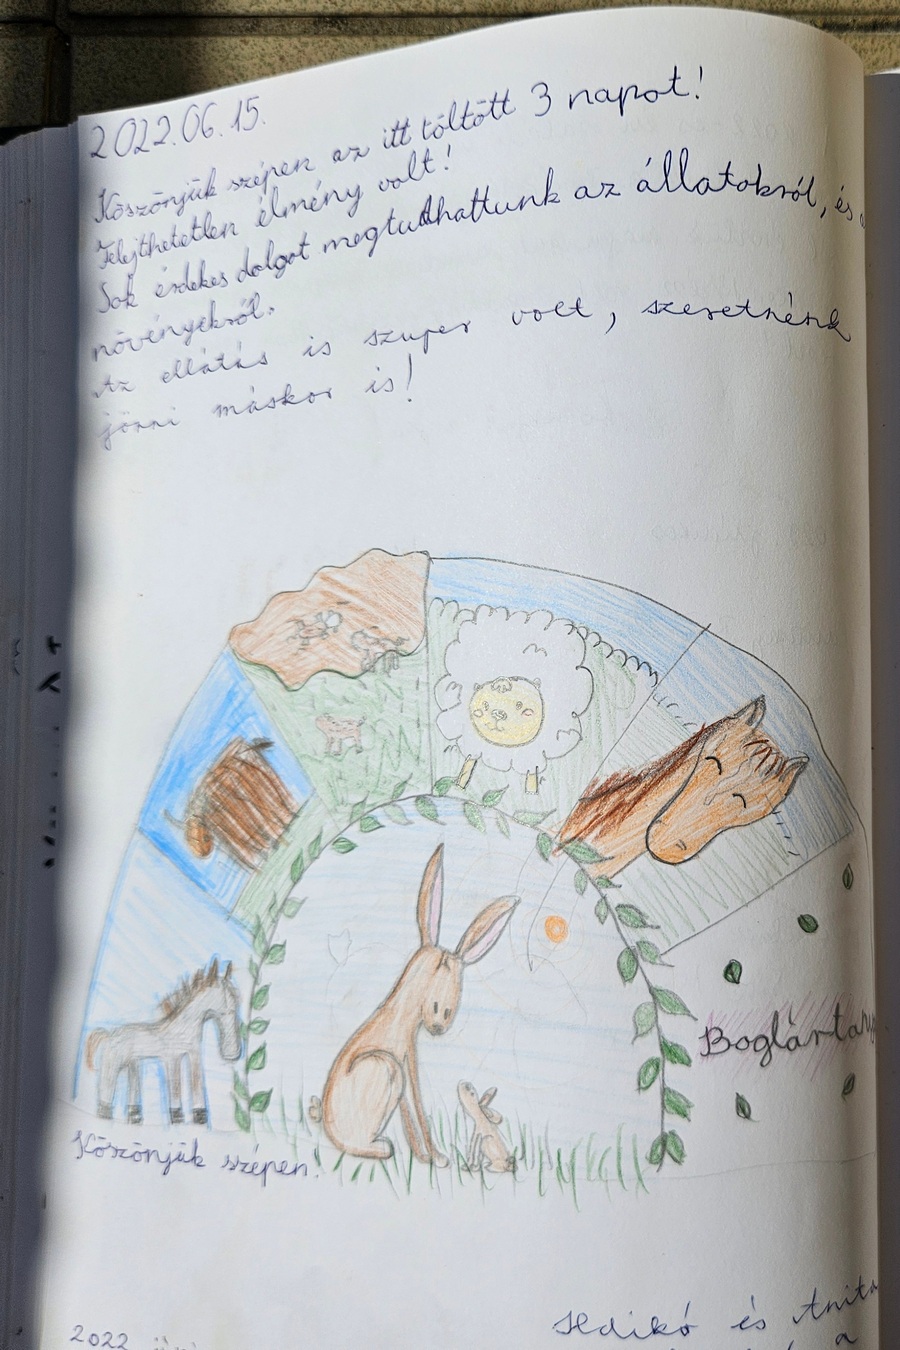 2022.06.15.
Köszönjük szépen az itt töltött 3 napot!
Felejthetetlen élmény volt!
Sok érdekes dolgot megtudhattunk az állatokról, és a
növényekről.
Az ellátás is szuper volt, szeretnénk
jönni máskor is!
Boglártanya
Köszönjük szépen!
Ildikó és Anita
2022
a